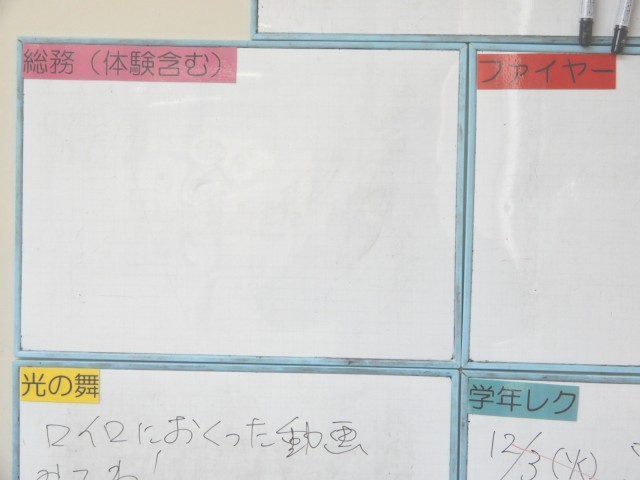 総務（体験含む）
ファイヤー
光の舞
ロイロにおくった動画
みてね!
学年レク
12/3(火)